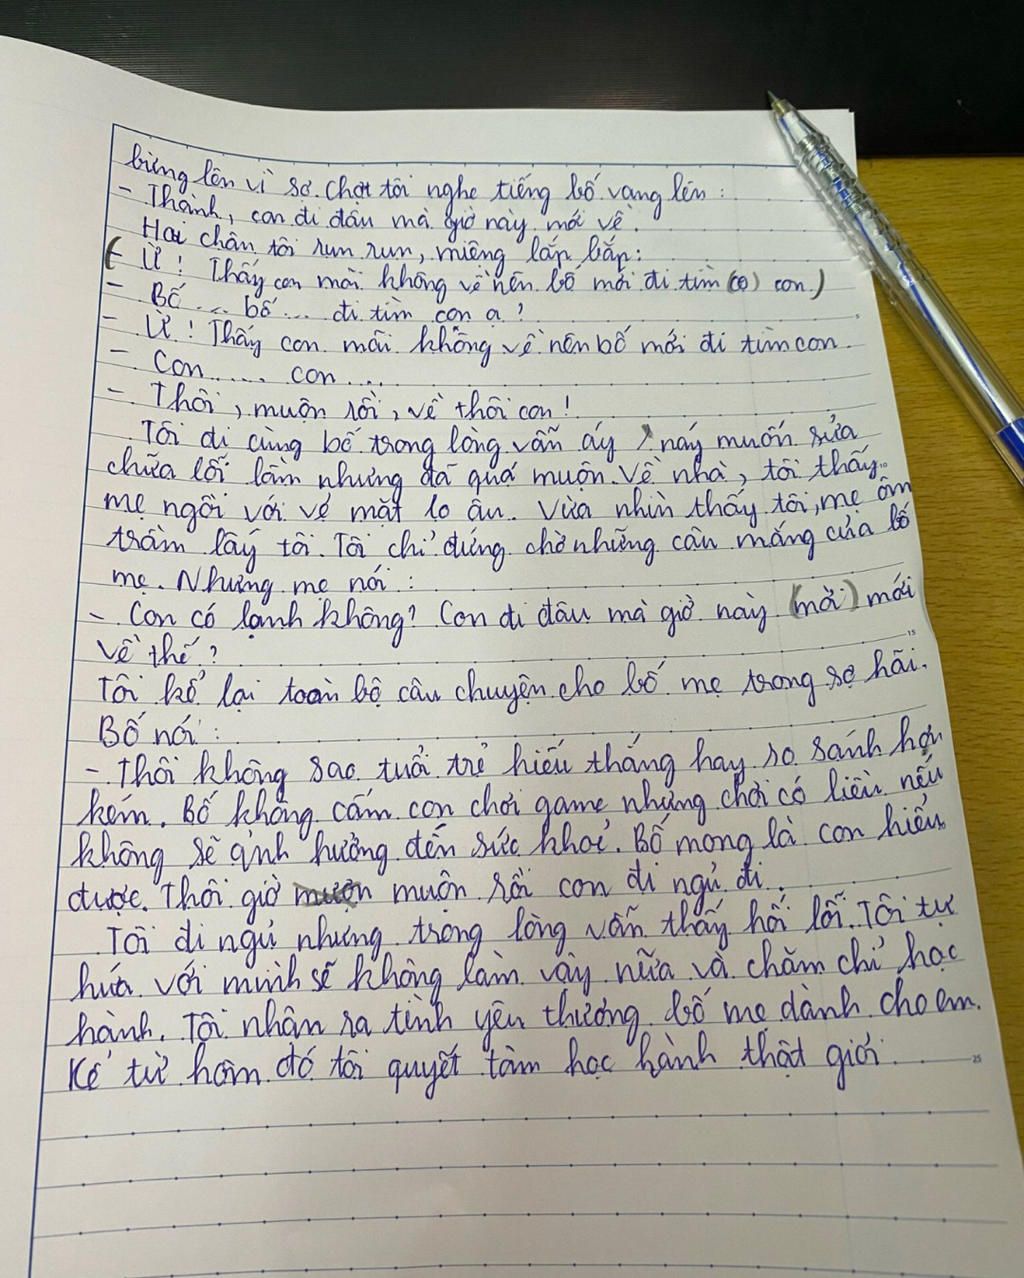 bừng lên vì sợ. Chợt tôi nghe tiếng bố vang lên :
- Thành, con đi đâu mà giờ này mới về.
Hai chân tôi run run, miệng lắp bắp:
(- Ừ ! Thấy con mãi không về nên bố mới đi tìm (co) con.)
- Bố ... bố ... đi tìm con ạ ?
- Ừ ! Thấy con mãi không về nên bố mới đi tìm con.
- Con ..... con ....
- Thôi, muộn rồi, về thôi con !
Tôi đi cùng bố trong lòng vẫn áy náy muốn sửa
chữa lỗi lầm nhưng đã quá muộn. Về nhà, tôi thấy
mẹ ngồi với vẻ mặt lo âu. Vừa nhìn thấy tôi, mẹ ôm
trầm lấy tôi. Tôi chỉ đứng chờ những câu mắng của bố
mẹ. Nhưng mẹ nói :
- Con có lạnh không? Con đi đâu mà giờ này (mới) mới
về thế ?
Tôi kể lại toàn bộ câu chuyện cho bố mẹ trong sợ hãi.
Bố nói :
- Thôi không sao tuổi trẻ hiếu thắng hay so sánh hơn
kém. Bố không cấm con chơi game nhưng chơi có liều nếu
không sẽ ảnh hưởng đến sức khoẻ. Bố mong là con hiểu
được. Thôi giờ muộn rồi con đi ngủ đi.
Tôi đi ngủ nhưng trong lòng vẫn thấy hối lỗi. Tôi tự
hứa với mình sẽ không làm vậy nữa và chăm chỉ học
hành. Tôi nhận ra tình yêu thương bố mẹ dành cho em.
Kể từ hôm đó tôi quyết tâm học hành thật giỏi.